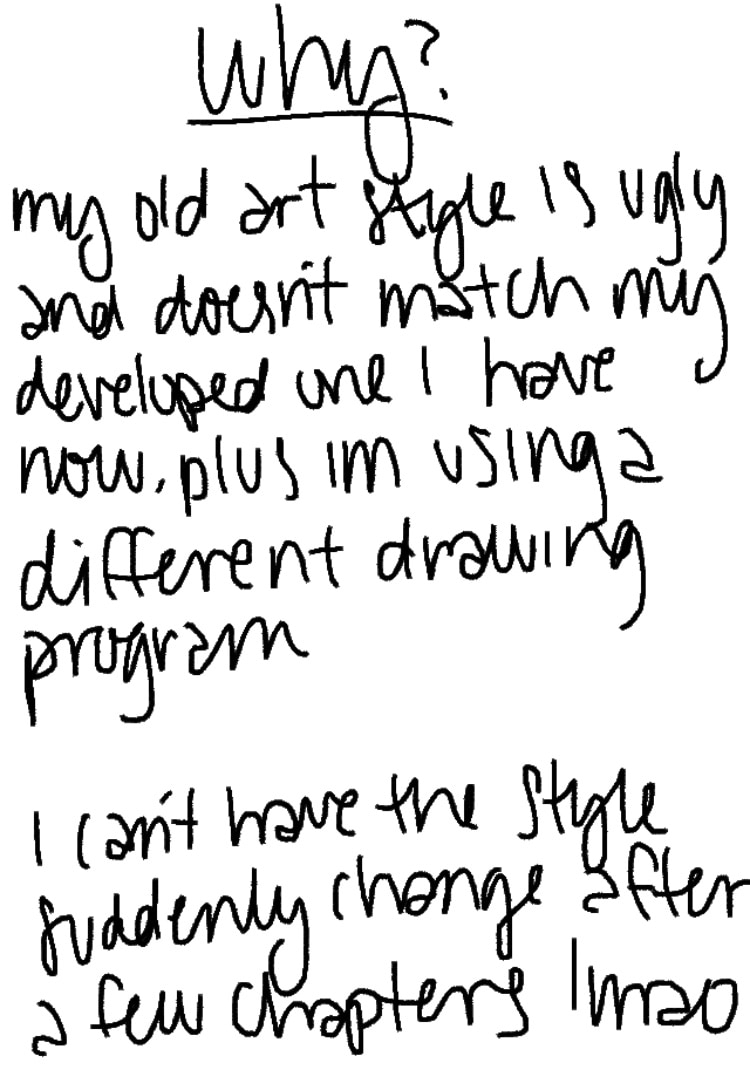 why?
my old art style is ugly
and doesn't match my
developed one I have
now. plus im using a
different drawing
program
I can't have the style
suddenly change after
a few chapters lmao